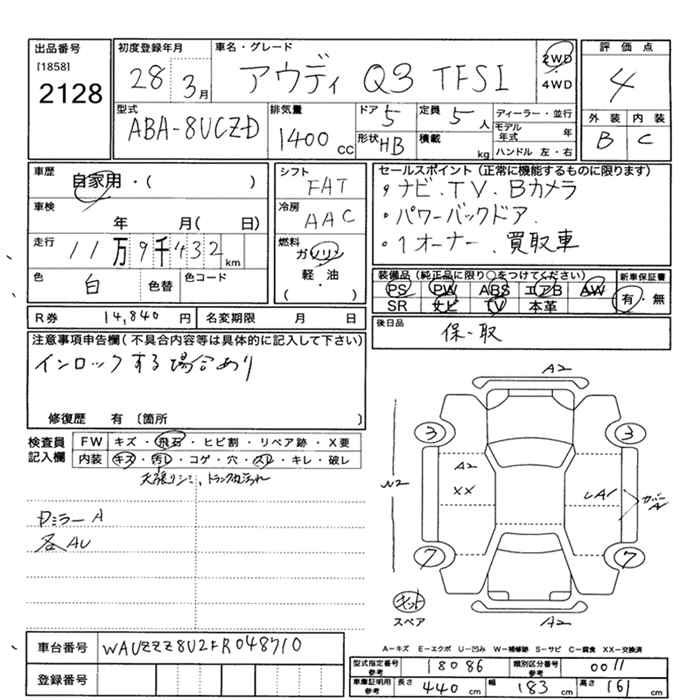 出品番号
[1858]
2128
初度登録年月
28 3月
車名・グレード
アウディ Q3 TFSI
2WD
・
4WD
評価点
4
外装 内装
B C
型式
ABA-8UCZD
排気量
1400 cc
ドア 5
形状 HB
定員 5 人
積載 kg
ディーラー・並行
モデル年式 年
ハンドル 左・右
車歴
自家用・( )
車検
年 月( 日)
走行
11万9千432 km
色 白 色替
色コード
シフト
FAT
冷房
AAC
燃料
ガソリン
軽・油
( )
セールスポイント(正常に機能するものに限ります)
・ナビ、TV、Bカメラ
・パワーバックドア、
・1オーナー、買取車
装備品(純正品に限り○をつけてください)
PS PW ABS エアB AW
SR ナビ TV 本革
新車保証書
有・無
R券 14,840 円
名変期限 月 日
後日品
保・取
注意事項申告欄(不具合内容等は具体的に記入して下さい)
インロックする場合あり
修復歴 有〔箇所 〕
検査員
記入欄
FW キズ・飛石・ヒビ割・リペア跡・X要
内装 キズ・汚レ・コゲ・穴・スレ・キレ・破レ
天張りシミ、トランク内汚れ
ミラーA
各AU
A2
3 3
A2
XX
N2
LA1
カバーA
7 7
スペア
A2
A－キズ E－エクボ U－凹み W－補修跡 S－サビ C－腐食 XX－交換済
車台番号
WAUZZZ8U2FR048710
登録番号
型式指定番号
参考
18086
類別区分番号
参考
0011
車庫証明用
参考
長さ 440 cm
幅 183 cm
高さ 161 cm